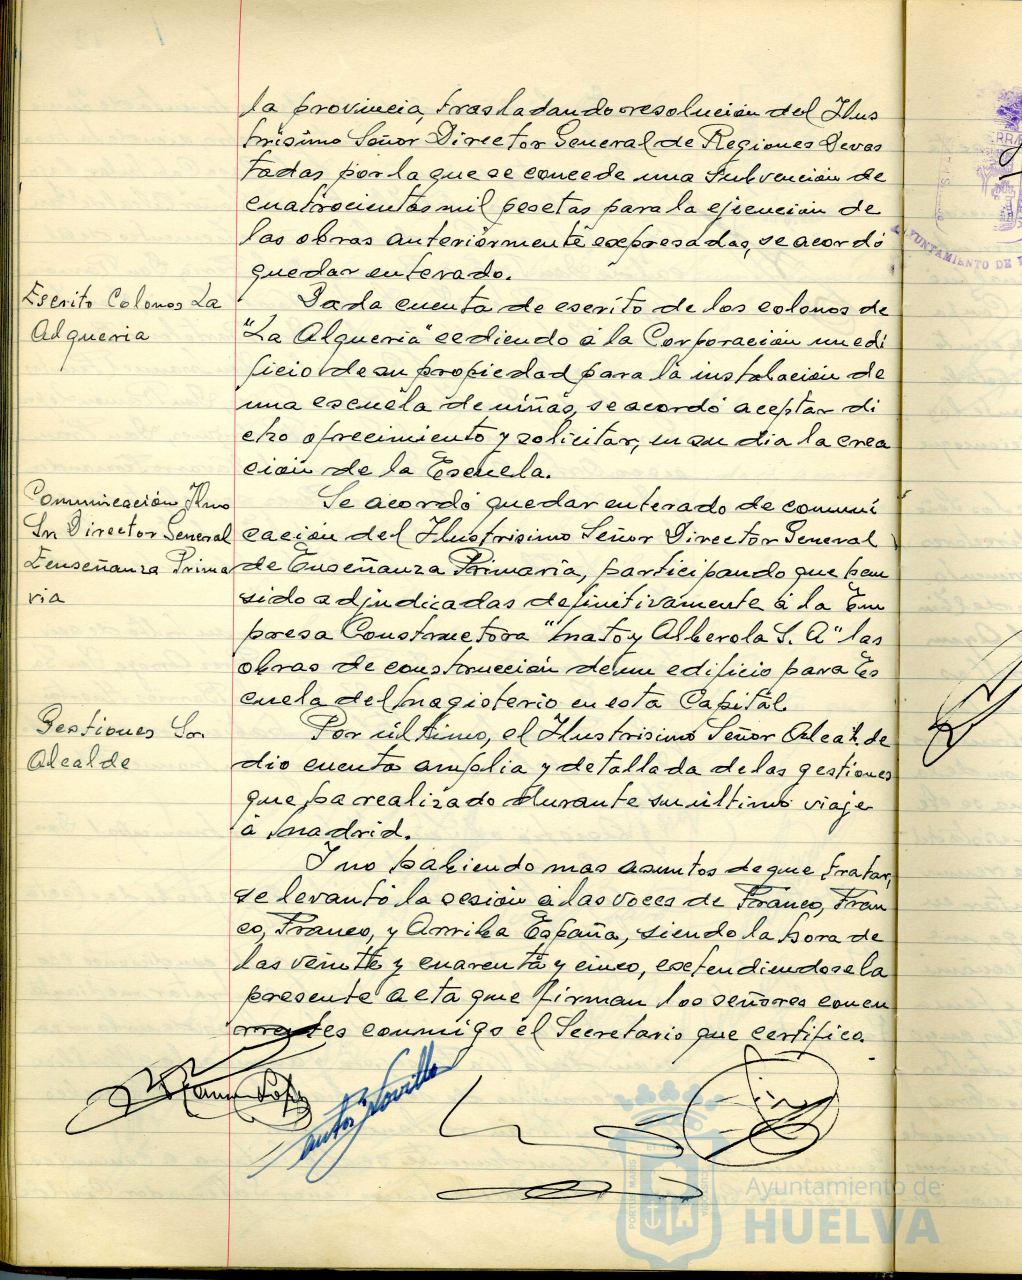 la provincia, trasladando resolución del Ilus
trísimo Señor Director General de Regiones Devas
tadas por la que se concede una subvención de
cuatrocientas mil pesetas para la ejecución de
las obras anteriormente expresadas, se acordó
quedar enterado.
Escrito Colonos La
Alqueria
Dada cuenta de escrito de los colonos de
"La Alqueria" cediendo á la Corporación un edi
ficio de su propiedad para la instalación de
una escuela de niñas, se acordó aceptar di
cho ofrecimiento y solicitar, en su dia la crea
ción de la Escuela.
Comunicación Ilmo
Sr. Director General
Enseñanza Prima
ria
Se acordó quedar enterado de comuni
cación del Ilustrisimo Señor Director General
de Enseñanza Primaria, participando que han
sido adjudicadas definitivamente á la Em
presa Constructora y Alberola S. A" las
obras de construcción de un edificio para Es
cuela del Magisterio en esta Capital.
Gestiones Sr.
Alcalde
Por último, el Ilustrisimo Señor Alcalde
dio cuenta amplia y detallada de las gestiones
que ha realizado durante su último viaje
á Madrid.
Y no habiendo mas asuntos de que tratar,
se levantó la sesión á las voces de Franco, Fran
co, Franco, y Arriba España, siendo la hora de
las veinte y cuarenta y cinco, extendiendose la
presente acta que firman los señores concu
rrentes conmigo el Secretario que certifico.
AYUNTAMIENTO DE
Ayuntamiento de
HUELVA